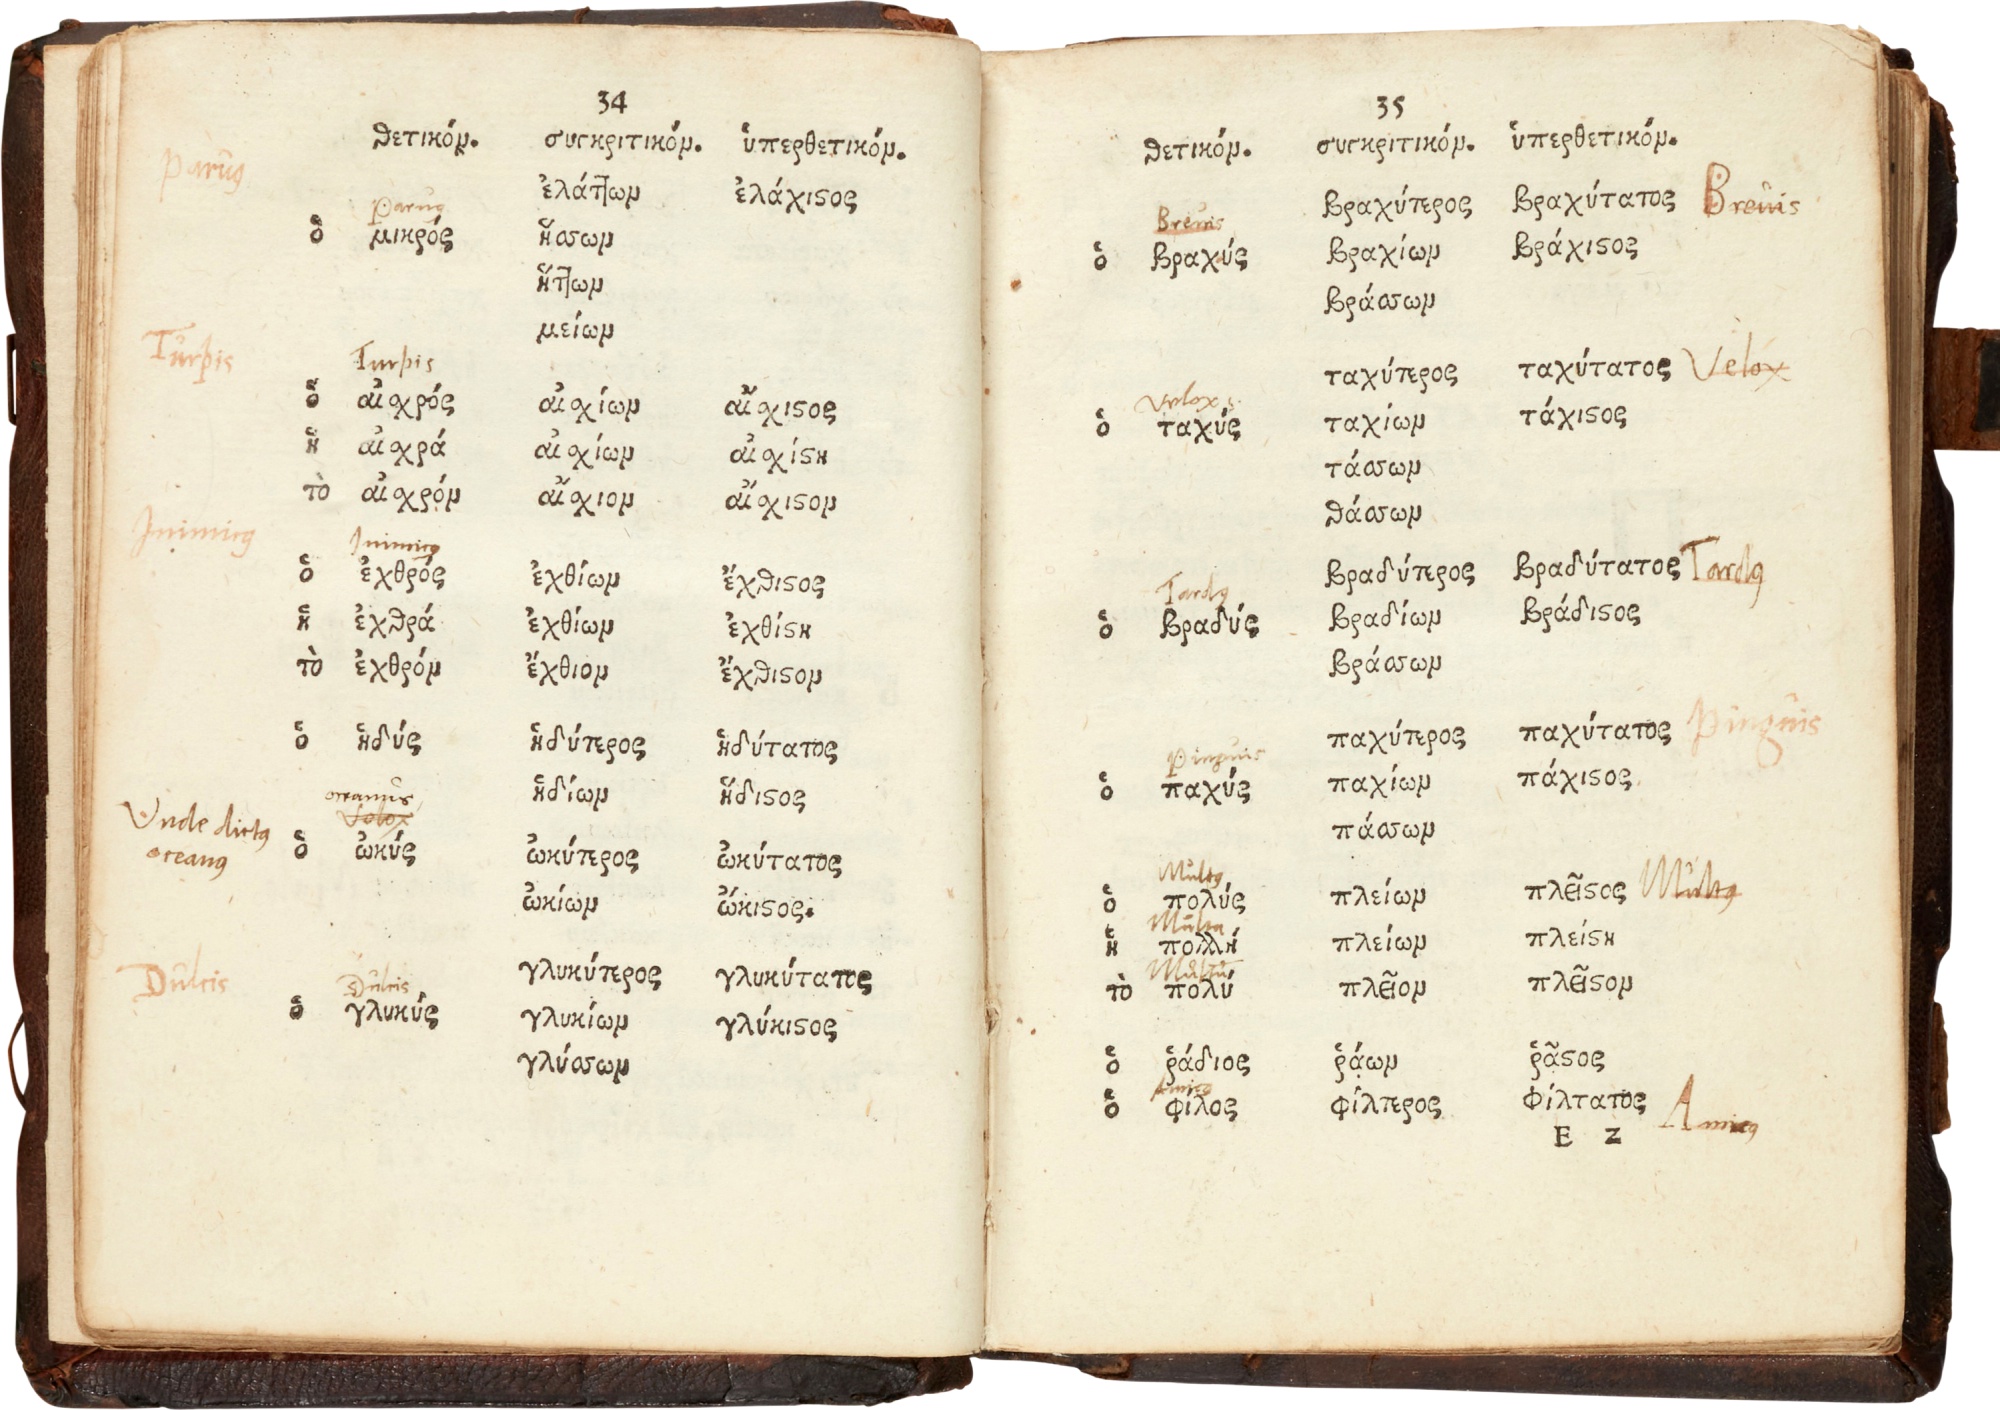 34
θετικόν. συγκριτικόν. ὑπερθετικόν.
Paruus
ἐλάττων ἐλάχιστος
Paruus
ὁ μικρός ἥσσων
ἥττων
μείων
Turpis
Turpis
ὁ αἰσχρός αἰσχίων αἴσχιστος
ἡ αἰσχρά αἰσχίων αἰσχίστη
τὸ αἰσχρόν αἴσχιον αἴσχιστον
Inimicus
Inimicus
ὁ ἐχθρός ἐχθίων ἔχθιστος
ἡ ἐχθρά ἐχθίων ἐχθίστη
τὸ ἐχθρόν ἔχθιον ἔχθιστον
ὁ ἡδύς ἡδύτερος ἡδύτατος
ἡδίων ἥδιστος
Velox
Vnde dictus
oceanus
ὁ ὠκύς ὠκύτερος ὠκύτατος
ὠκίων ὤκιστος.
Dulcis
γλυκύτερος γλυκύτατος
Dulcis
ὁ γλυκύς γλυκίων γλύκιστος
γλύσσων
35
θετικόν. συγκριτικόν. ὑπερθετικόν.
βραχύτερος βραχύτατος Breuis
Breuis
ὁ βραχύς βραχίων βράχιστος
βράσσων
ταχύτερος ταχύτατος Velox
Velox
ὁ ταχύς ταχίων τάχιστος
τάσσων
θάσσων
βραδύτερος βραδύτατος Tardus
Tardus
ὁ βραδύς βραδίων βράδιστος
βράσσων
παχύτερος παχύτατος Pinguis
Pinguis
ὁ παχύς παχίων πάχιστος
πάσσων
Multus
ὁ πολύς πλείων πλεῖστος Multus
Multa
ἡ πολλή πλείων πλείστη
Multū
τὸ πολύ πλεῖον πλεῖστον
ὁ ῥάδιος ῥάων ῥᾶστος
Amicus
ὁ φίλος φίλτερος φίλτατος
E 2
Amicus